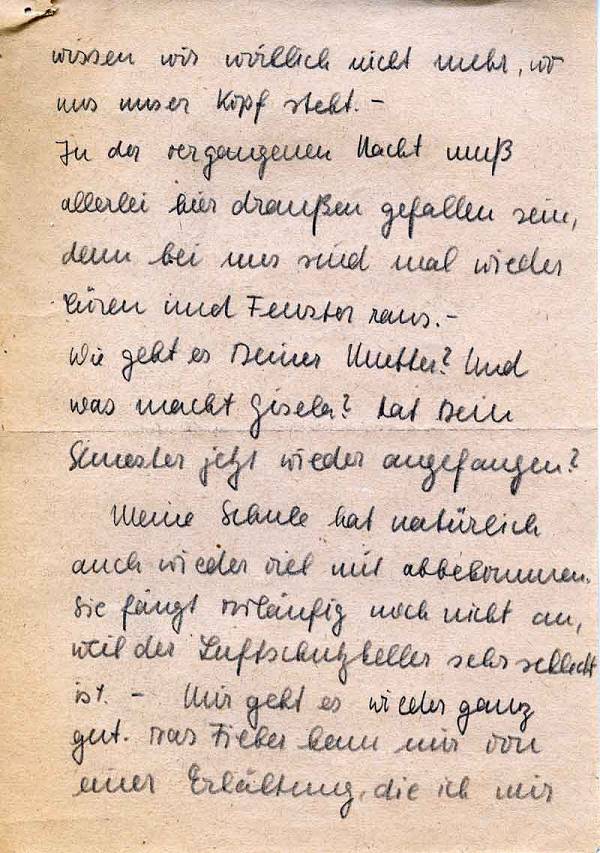 wissen wir wirklich nicht mehr, wo
uns unser Kopf steht. –
In der vergangenen Nacht muß
allerlei hier draußen gefallen sein,
denn bei uns sind mal wieder
Türen und Fenster raus. –
Wie geht es Deiner Mutter? Und
was macht Gisela? Hat Dein
Semester jetzt wieder angefangen?
Meine Schule hat natürlich
auch wieder viel mit abbekommen.
Sie fängt vorläufig noch nicht an,
weil der Luftschutzkeller sehr schlecht
ist. – Mir geht es wieder ganz
gut. Das Fieber kam mir von
einer Erkältung, die ich mir